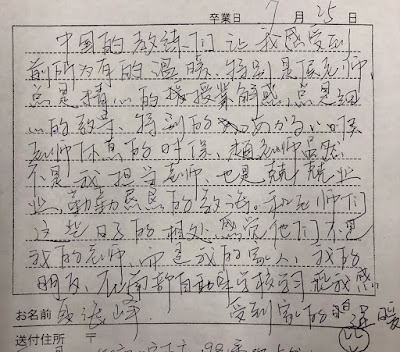 卒業日 7月25日
中国的教練们让我感受到
前所为有的温暖、特别是侯老师
总是精心的授業解惑、总是细
心的教导、特别的あかるい、侯
老师休息的时候、趙老师虽然
不是我担当老师、也是兢兢業
业、勤勤恳恳的教诲。和老师们
这些日子的相处、感觉他们不是
我的老师、而是我的家人、我的
朋友、在南部自動車学校学习 让我感
お名前 張峰 受到家的温暖
送付住所 〒